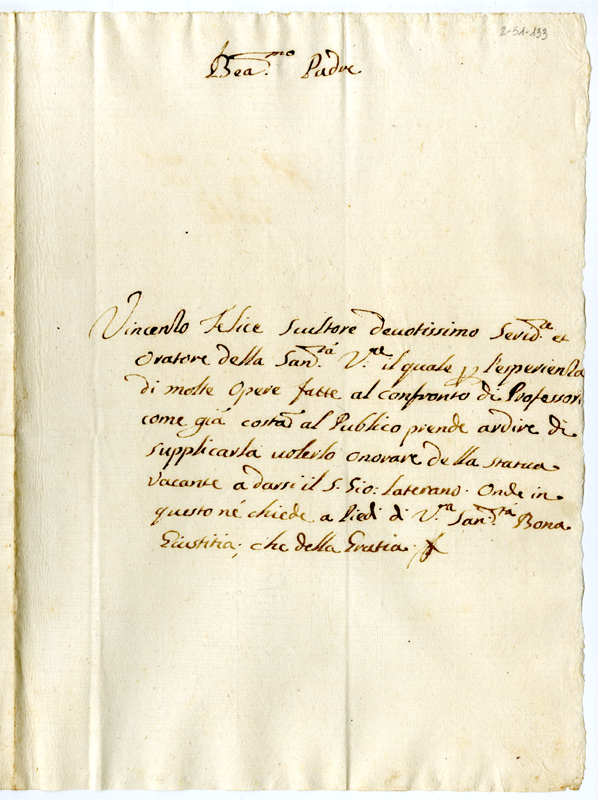 2-51-133
Bea.mo Padre
Vincenzo Felice Scultore deuotissimo Seruid.e et
Oratore della San.tà V.ra il quale p l'esperienza
di molte opere fatte al confronto di Professori
come già costa al Publico prende ardire di
supplicarla uolerlo onorare della statua
vacante a darsi il S. Gio: laterano. Onde in
questo né chiede a Piedi di V.ra San.tà Bona
Giustitia, che della Gratia.